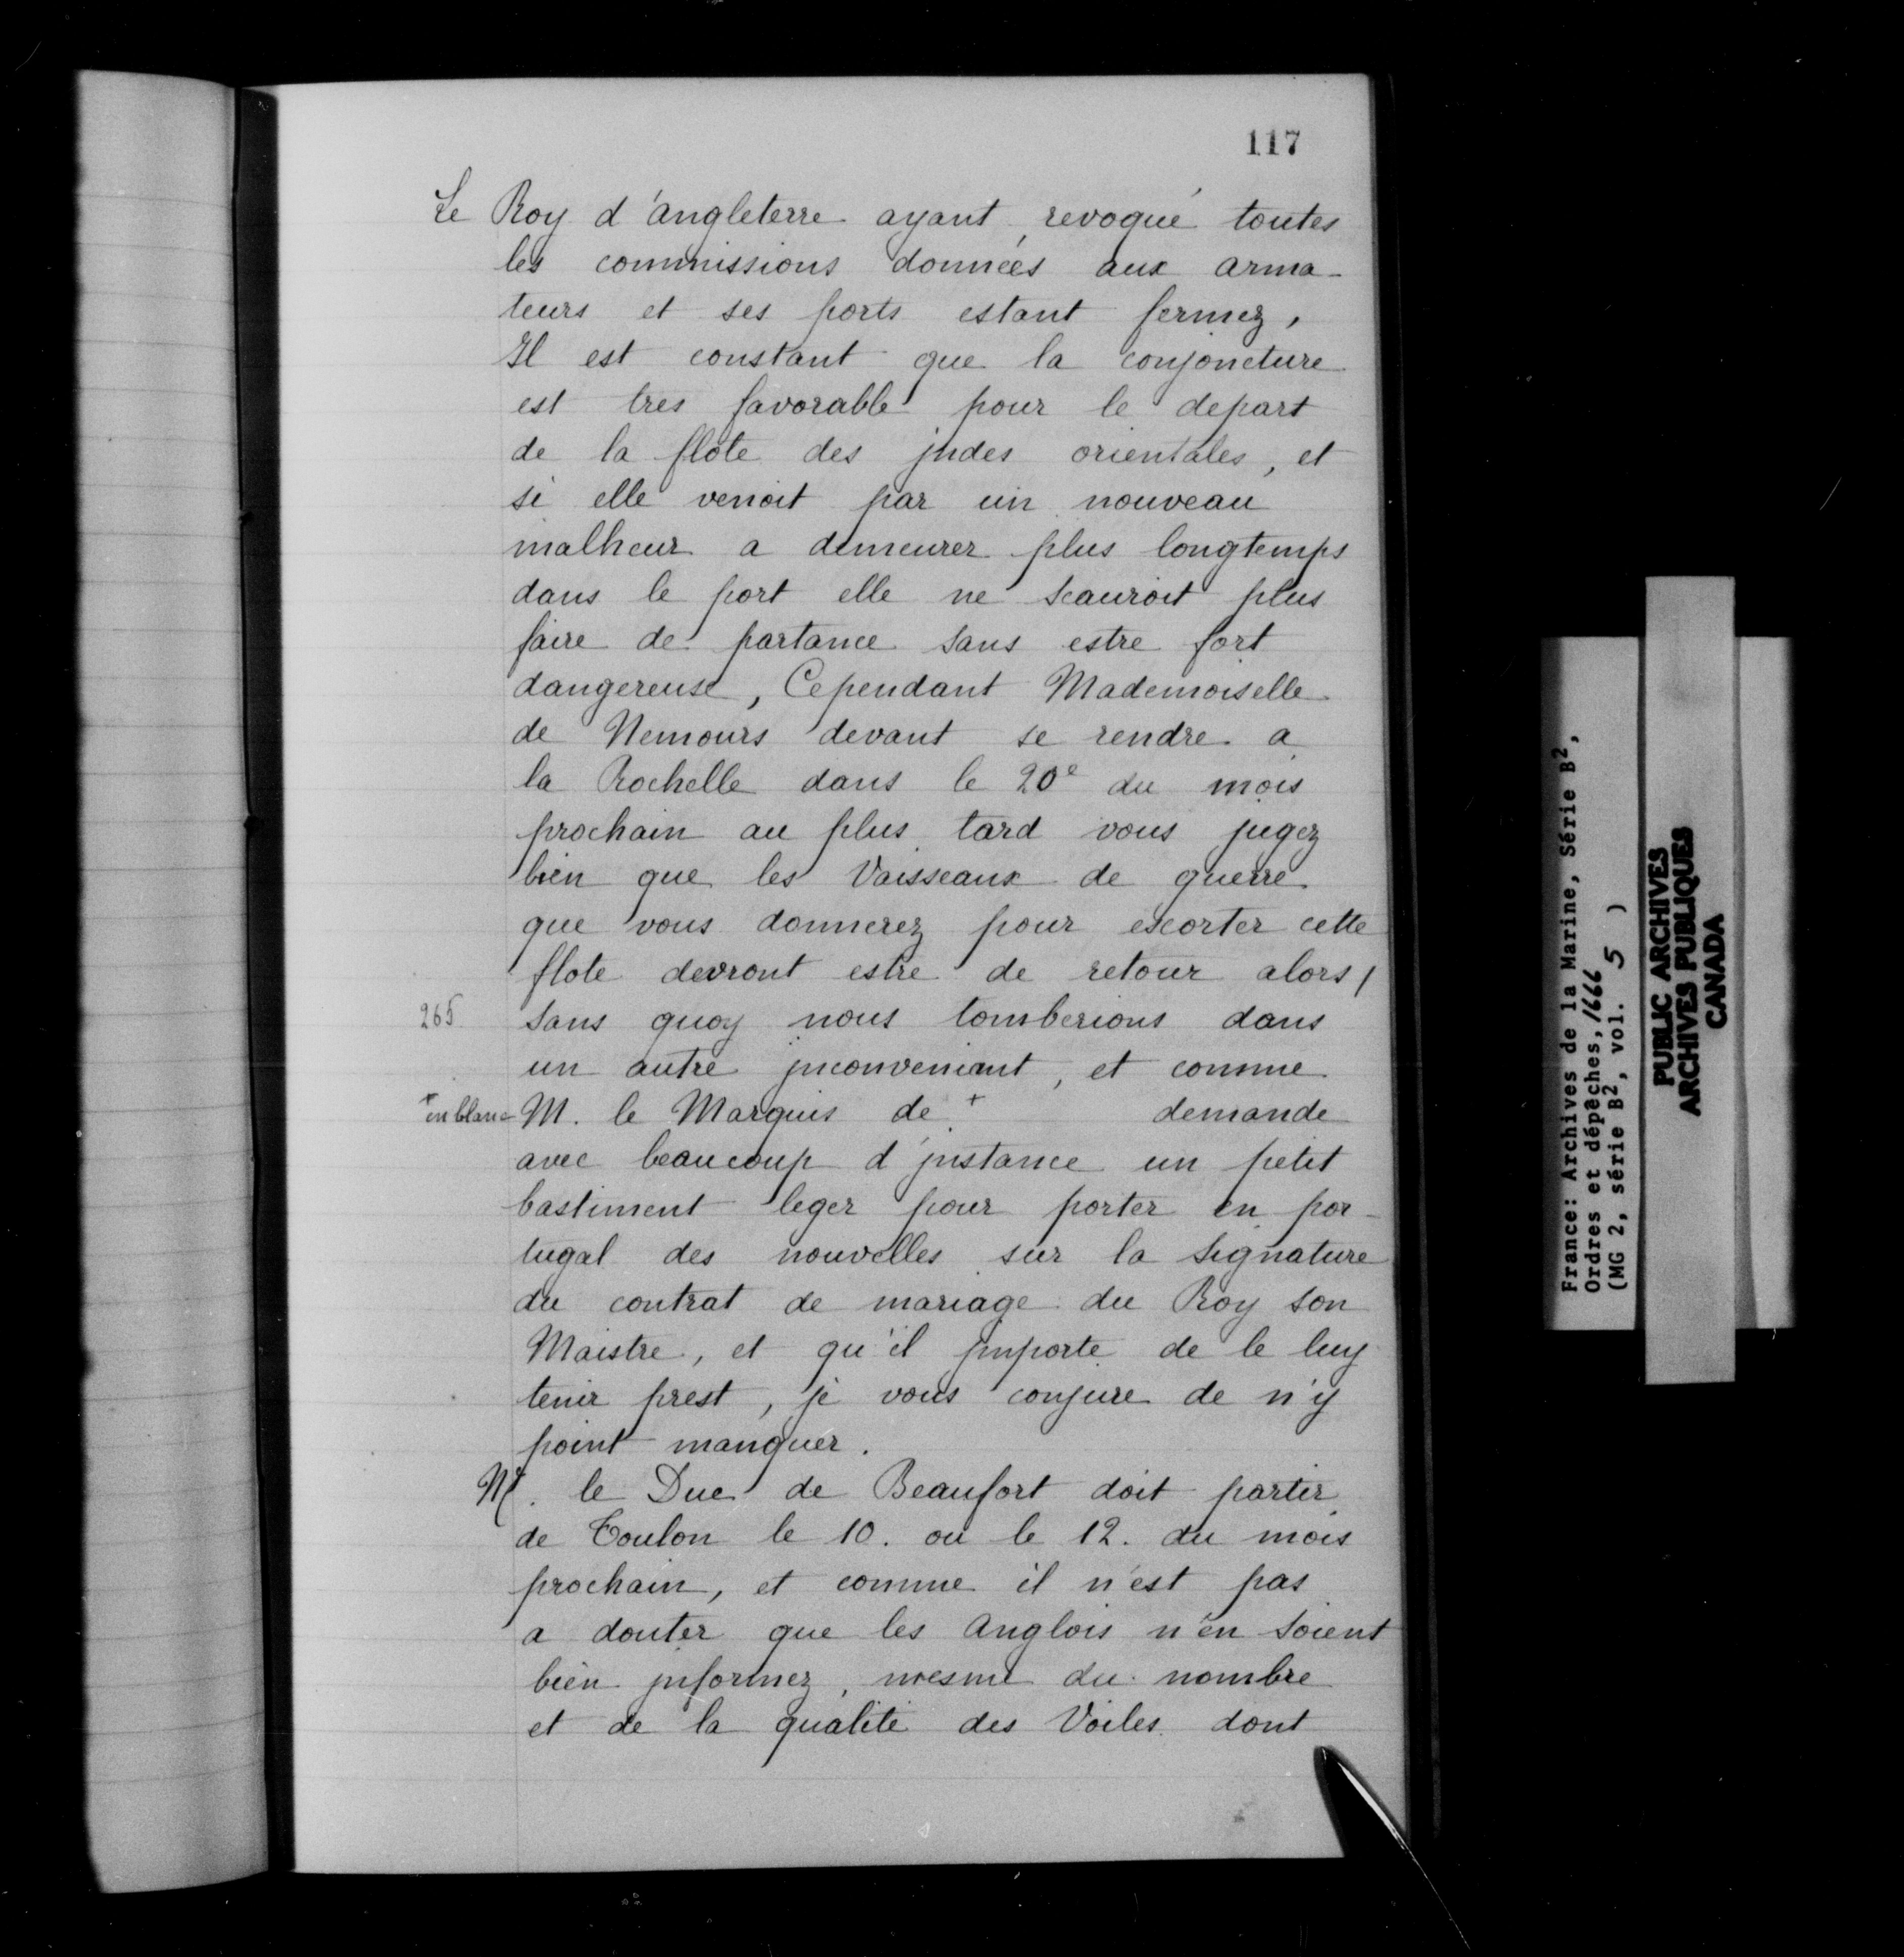 117
Le Roy d'angleterre ayant revoqué toutes
les commissions données aux arma-
teurs et ses ports estant fermez,
Il est constant que la conjoncture
est tres favorable pour le depart
de la flote des jndes orientales, et
si elle venoit par un nouveau
malheur a demeurer plus longtemps
dans le port elle ne scauroit plus
faire de partance sans estre fort
dangereuse, Cependant Mademoiselle
de Nemours devant se rendre a
la Rochelle dans le 20e du mois
prochain au plus tard vous jugez
bien que les Vaisseaux de guerre
que vous donnerez pour escorter cette
flote devront estre de retour alors,
265 sans quoy nous tomberions dans
un autre jnconvenient, et comme
+ en blanc M. le Marquis de + demande
avec beaucoup d'jnstance un petit
bastiment leger pour porter en por-
tugal des nouvelles sur la signature
du contrat de mariage du Roy son
Maistre, et qu'il jmporte de le luy
tenir prest, je vous conjure de n'y
point manquer.
M. le Duc de Beaufort doit partir
de Toulon le 10. ou le 12. du mois
prochain, et comme il n'est pas
a douter que les anglois n'en soient
bien jnformez, mesme du nombre
et de la qualité des Voiles dont
France: Archives de la Marine, Série B2,
Ordres et dépêches, 1666
(MG 2, série B2, vol. 5 )
PUBLIC ARCHIVES
ARCHIVES PUBLIQUES
CANADA